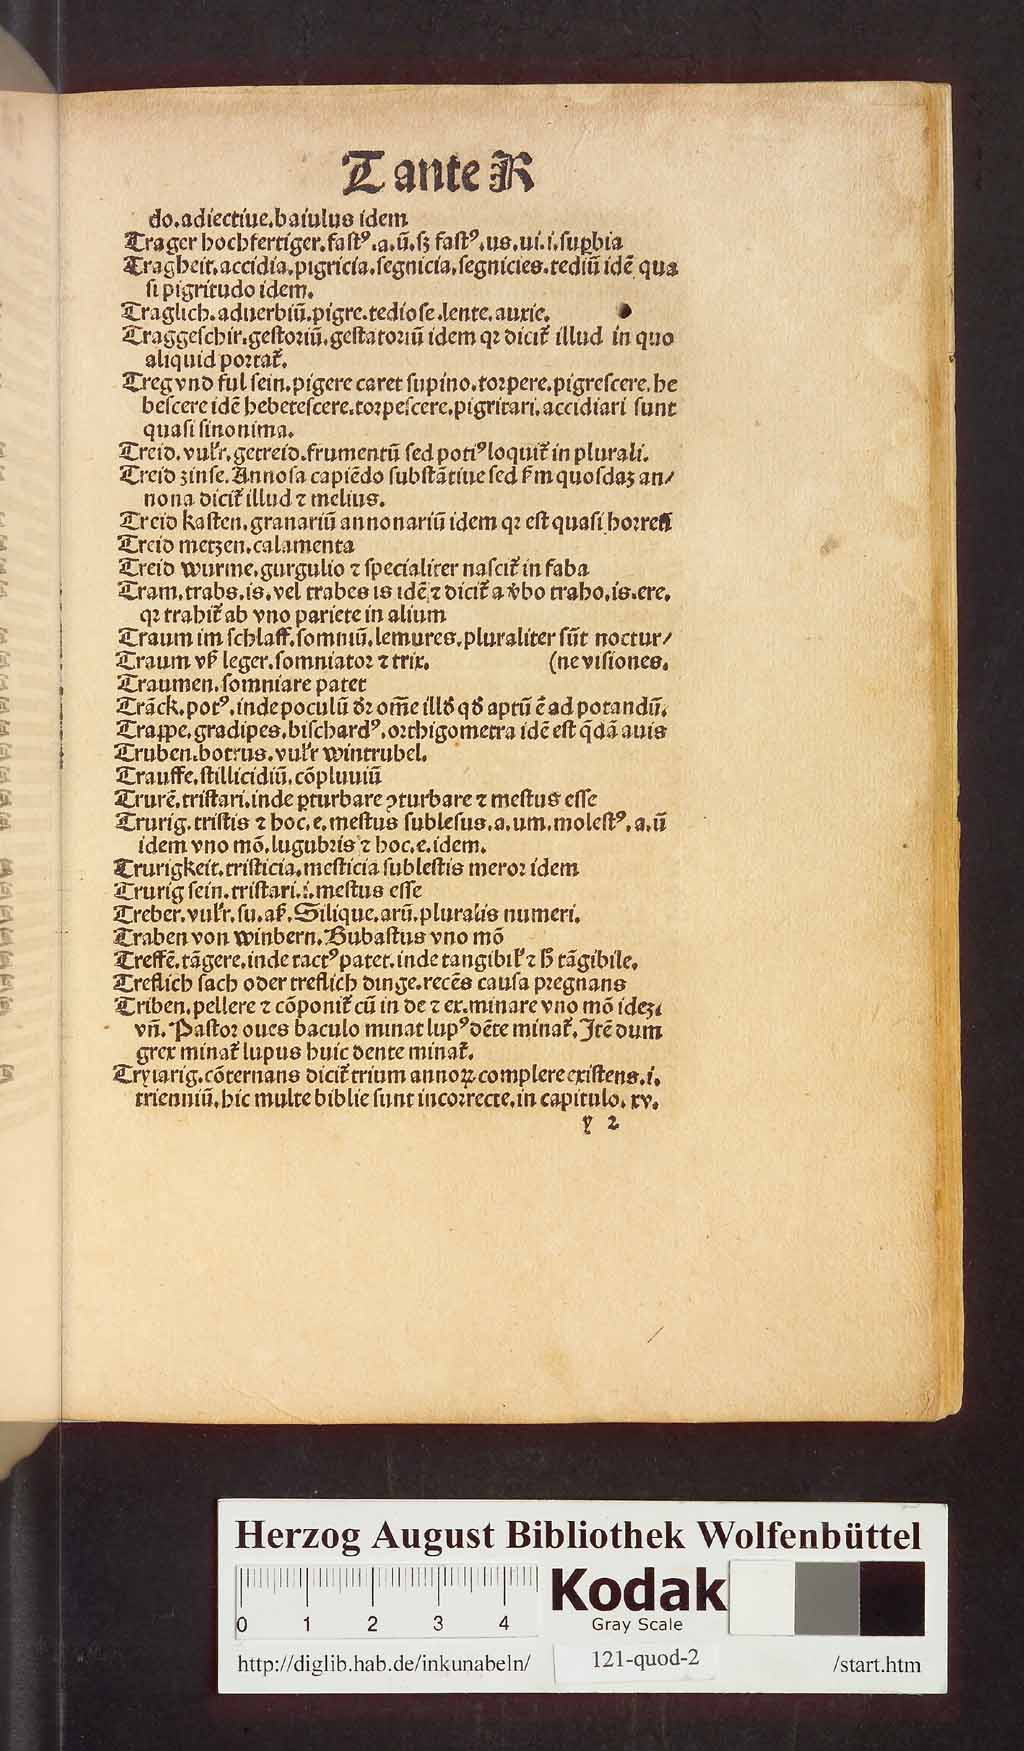 T ante R
do.adiectiue.baiulus idem
Trager hochfertiger.fastꝰ.a.ũ.sꝫ fastꝰ.us.ui.i.suꝑbia
Tragheit.accidia.pigricia.segnicia.segnicies.tediũ idẽ qua
si pigritudo idem.
Traglich.aduerbiũ.pigre.tediose.lente.auxie.
Traggeschir.gestoriũ.gestatoriũ idem qꝛ dicit̃ illud in quo
aliquid portat̃.
Treg vnd ful sein.pigere caret supino.torpere.pigrescere.he
bescere idẽ hebetescere.torpescere.pigritari.accidiari sunt
quasi sinonima.
Treid.vul'r.getreid.frumentũ sed potiꝰ loquit̃ in plurali.
Treid zinse.Annosa capiẽdo substãtiue sed ẜm quosdaꝫ an/
nona dicit̃ illud ⁊ melius.
Treid kasten.granariũ annonariũ idem qꝛ est quasi horreũ
Treid metzen.calamenta
Treid wurme.gurgulio ⁊ specialiter nascit̃ in faba
Tram.trabs.is.vel trabes is idẽ ⁊ dicit̃ a v̓bo traho.is.ere.
qꝛ trahit̃ ab vno pariete in alium
Traum im schlaff.somniũ.lemures.pluraliter sũt noctur/
Traum vß leger.somniator ⁊ trix. (ne visiones.
Traumen.somniare patet
Trãck.potꝰ.inde poculũ dr̃ om̃e illđ qđ aptũ ẽ ad potandũ.
Trappe.gradipes.bischardꝰ.orthigometra idẽ est q̃dã auis
Truben.botrus.vul'r wintrubel.
Trauffe.stillicidiũ.cõpluuiũ
Trurẽ.tristari.inde ꝑturbare ꝯturbare ⁊ mestus esse
Trurig.tristis ⁊ hoc.e.mestus sublesus.a.um.molestꝰ.a.ũ
idem vno mõ.lugubris ⁊ hoc.e.idem.
Trurigkeit.tristicia.mesticia sublestis meror idem
Trurig sein.tristari.i.mestus esse
Treber.vul'r.su.aß.Silique.arũ.pluralis numeri.
Traben von winbern.Bubastus vno mõ
Treffẽ.tãgere.inde tactꝰ patet.inde tangibil' ⁊ h̃ tãgibile.
Treflich sach oder treflich dinge.recẽs causa pregnans
Triben.pellere ⁊ cõponit̃ cũ in de ⁊ ex.minare vno mõ ideꝫ.
vñ.Pastor oues baculo minat lupꝰ dẽte minat̃.Itẽ dum
grex minat̃ lupus huic dente minat̃.
Tryiarig.cõternans dicit̃ trium annoꝝ complere existens.i.
trienniũ.hic multe biblie sunt incorrecte.in capitulo.xv.
y 2
Herzog August Bibliothek Wolfenbüttel
0 1 2 3 4
Kodak
Gray Scale
http://diglib.hab.de/inkunabeln/ 121-quod-2 /start.htm